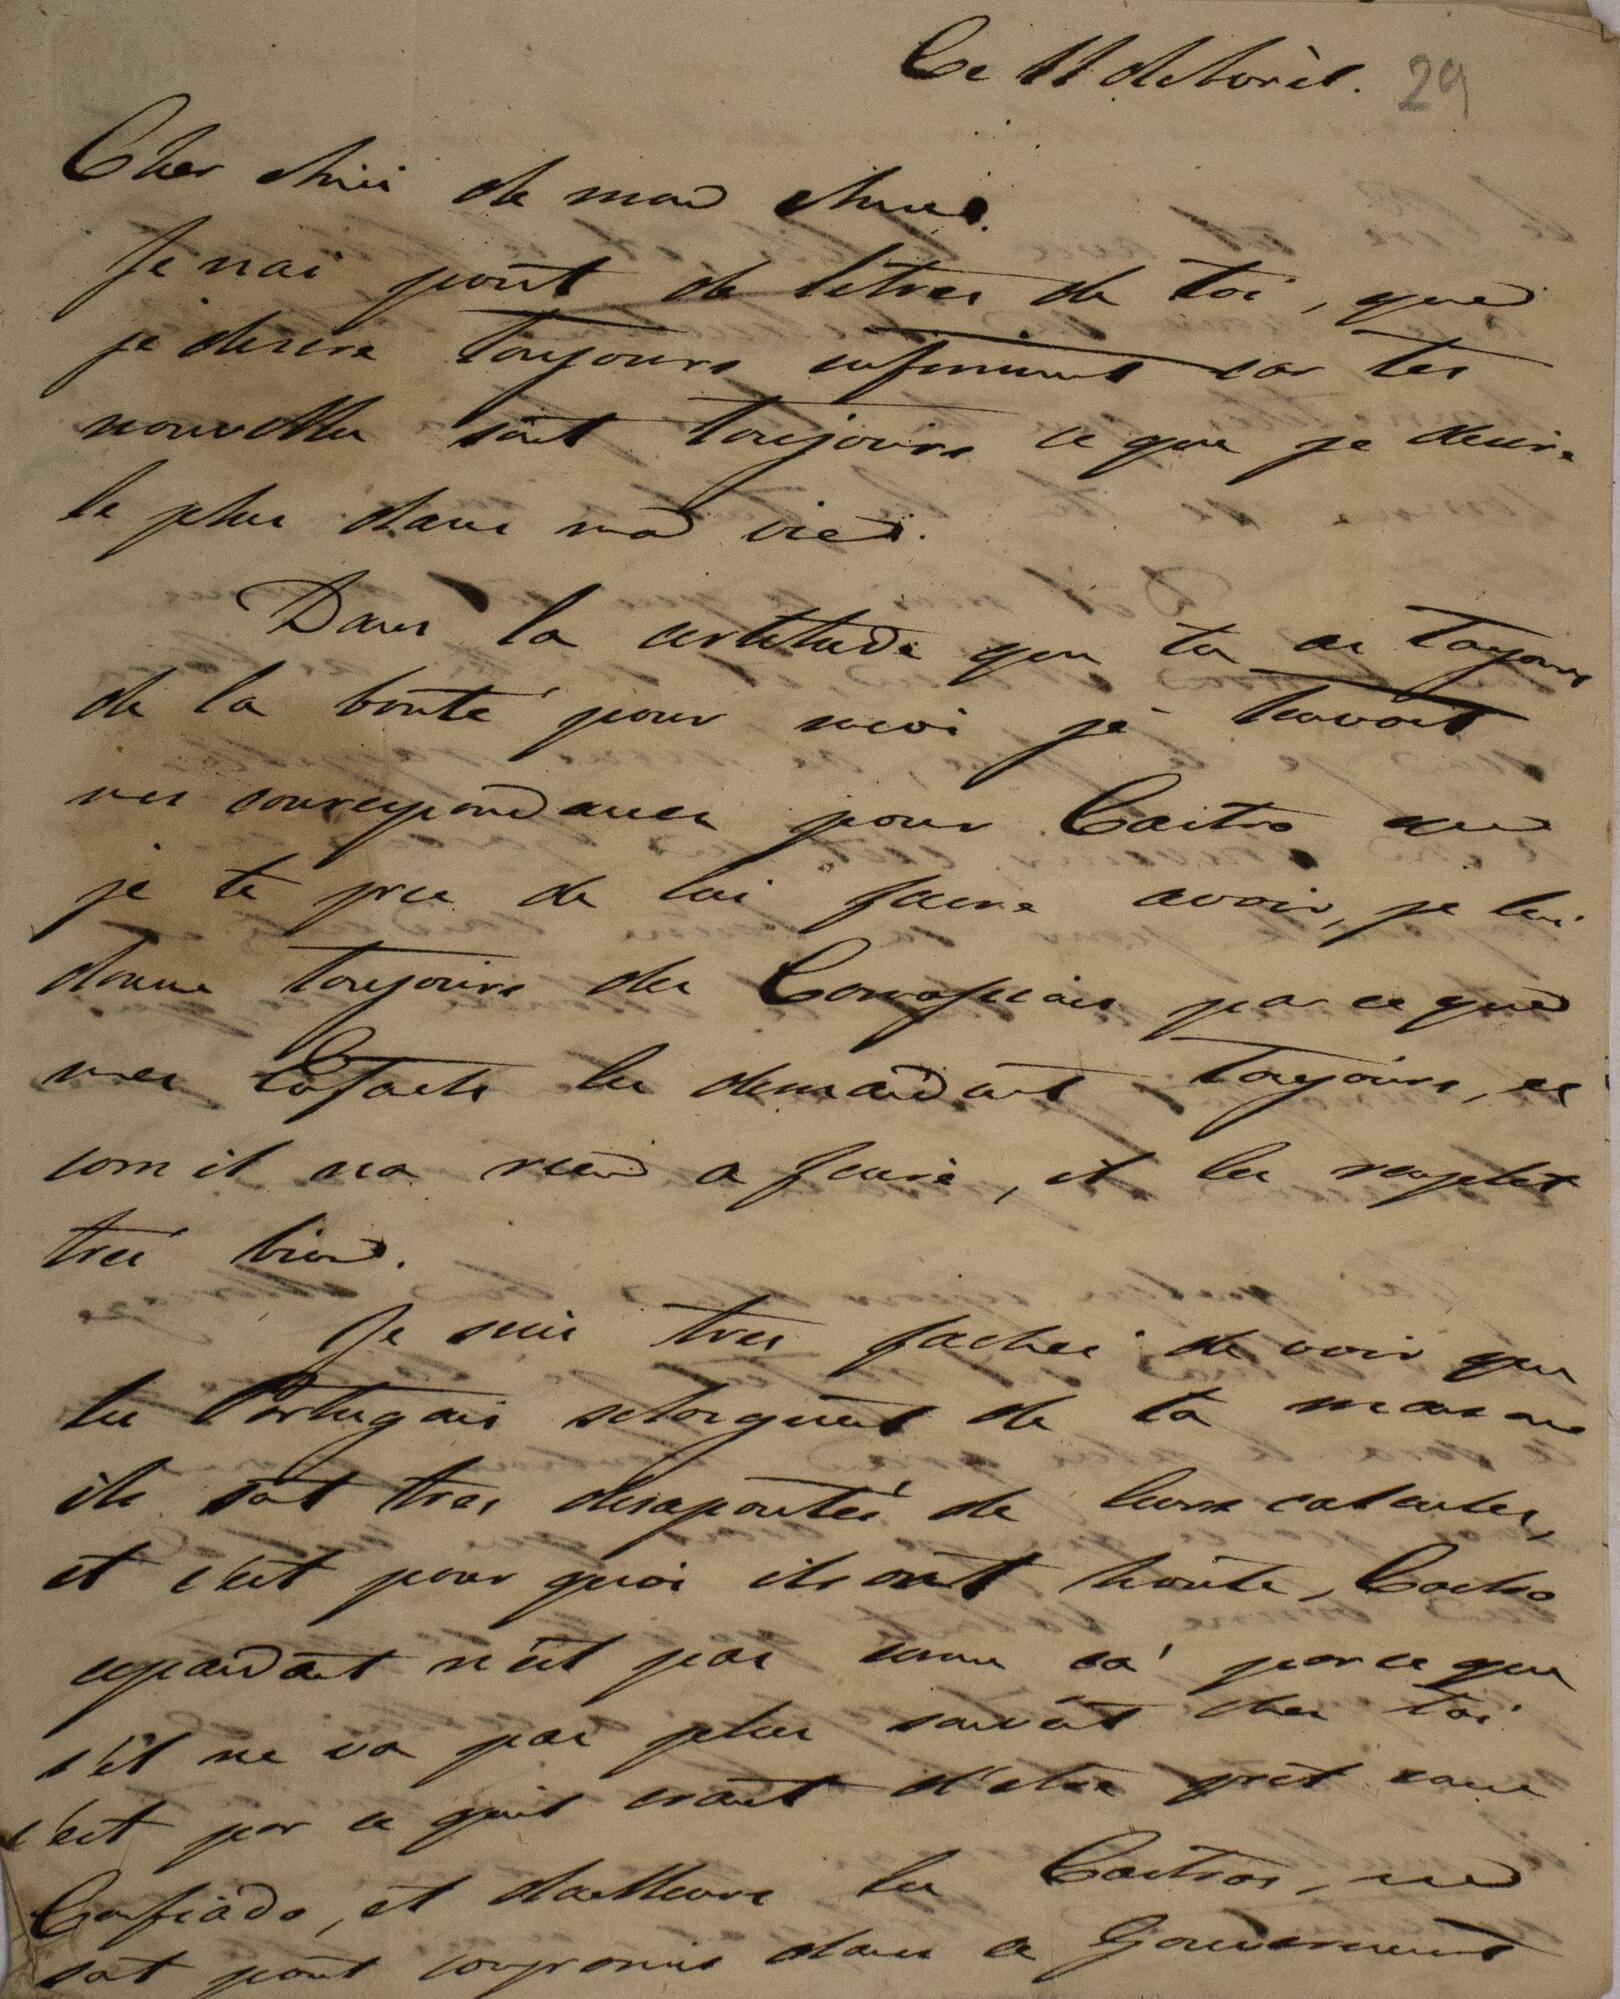 Ce 11 de Avril. 29
Cher Ami de mon Ame.
Je nai point de letres de toi, que
je desire toujours infiniment car tes
nouvelles sont toujours ce que je desire
le plus dans ma vie.
Dans la certitude que tu as toujours
de la bonté pour moi je
mes correspondances pour Castro que
je te prie de lui faire avoir, je lui
donne toujours des parce que
mes les demandent toujours, et
com il na rien a faire, il les remplit
tres bien.
Je suis tres fachée de voir que
les Portugais seloignent de ta maison
ils sont tres desapontés de leurs calcules,
et c'est pour quoi ils ont honte, Castro
cependant n'est pas comme ca' parce que
s'il ne va pas plus souvent chez toi
c'est par ce quil craint d'etre pris comme
Confiado, et dailleurs les Castros, ne
sont point compromis dans ce Gouvernement